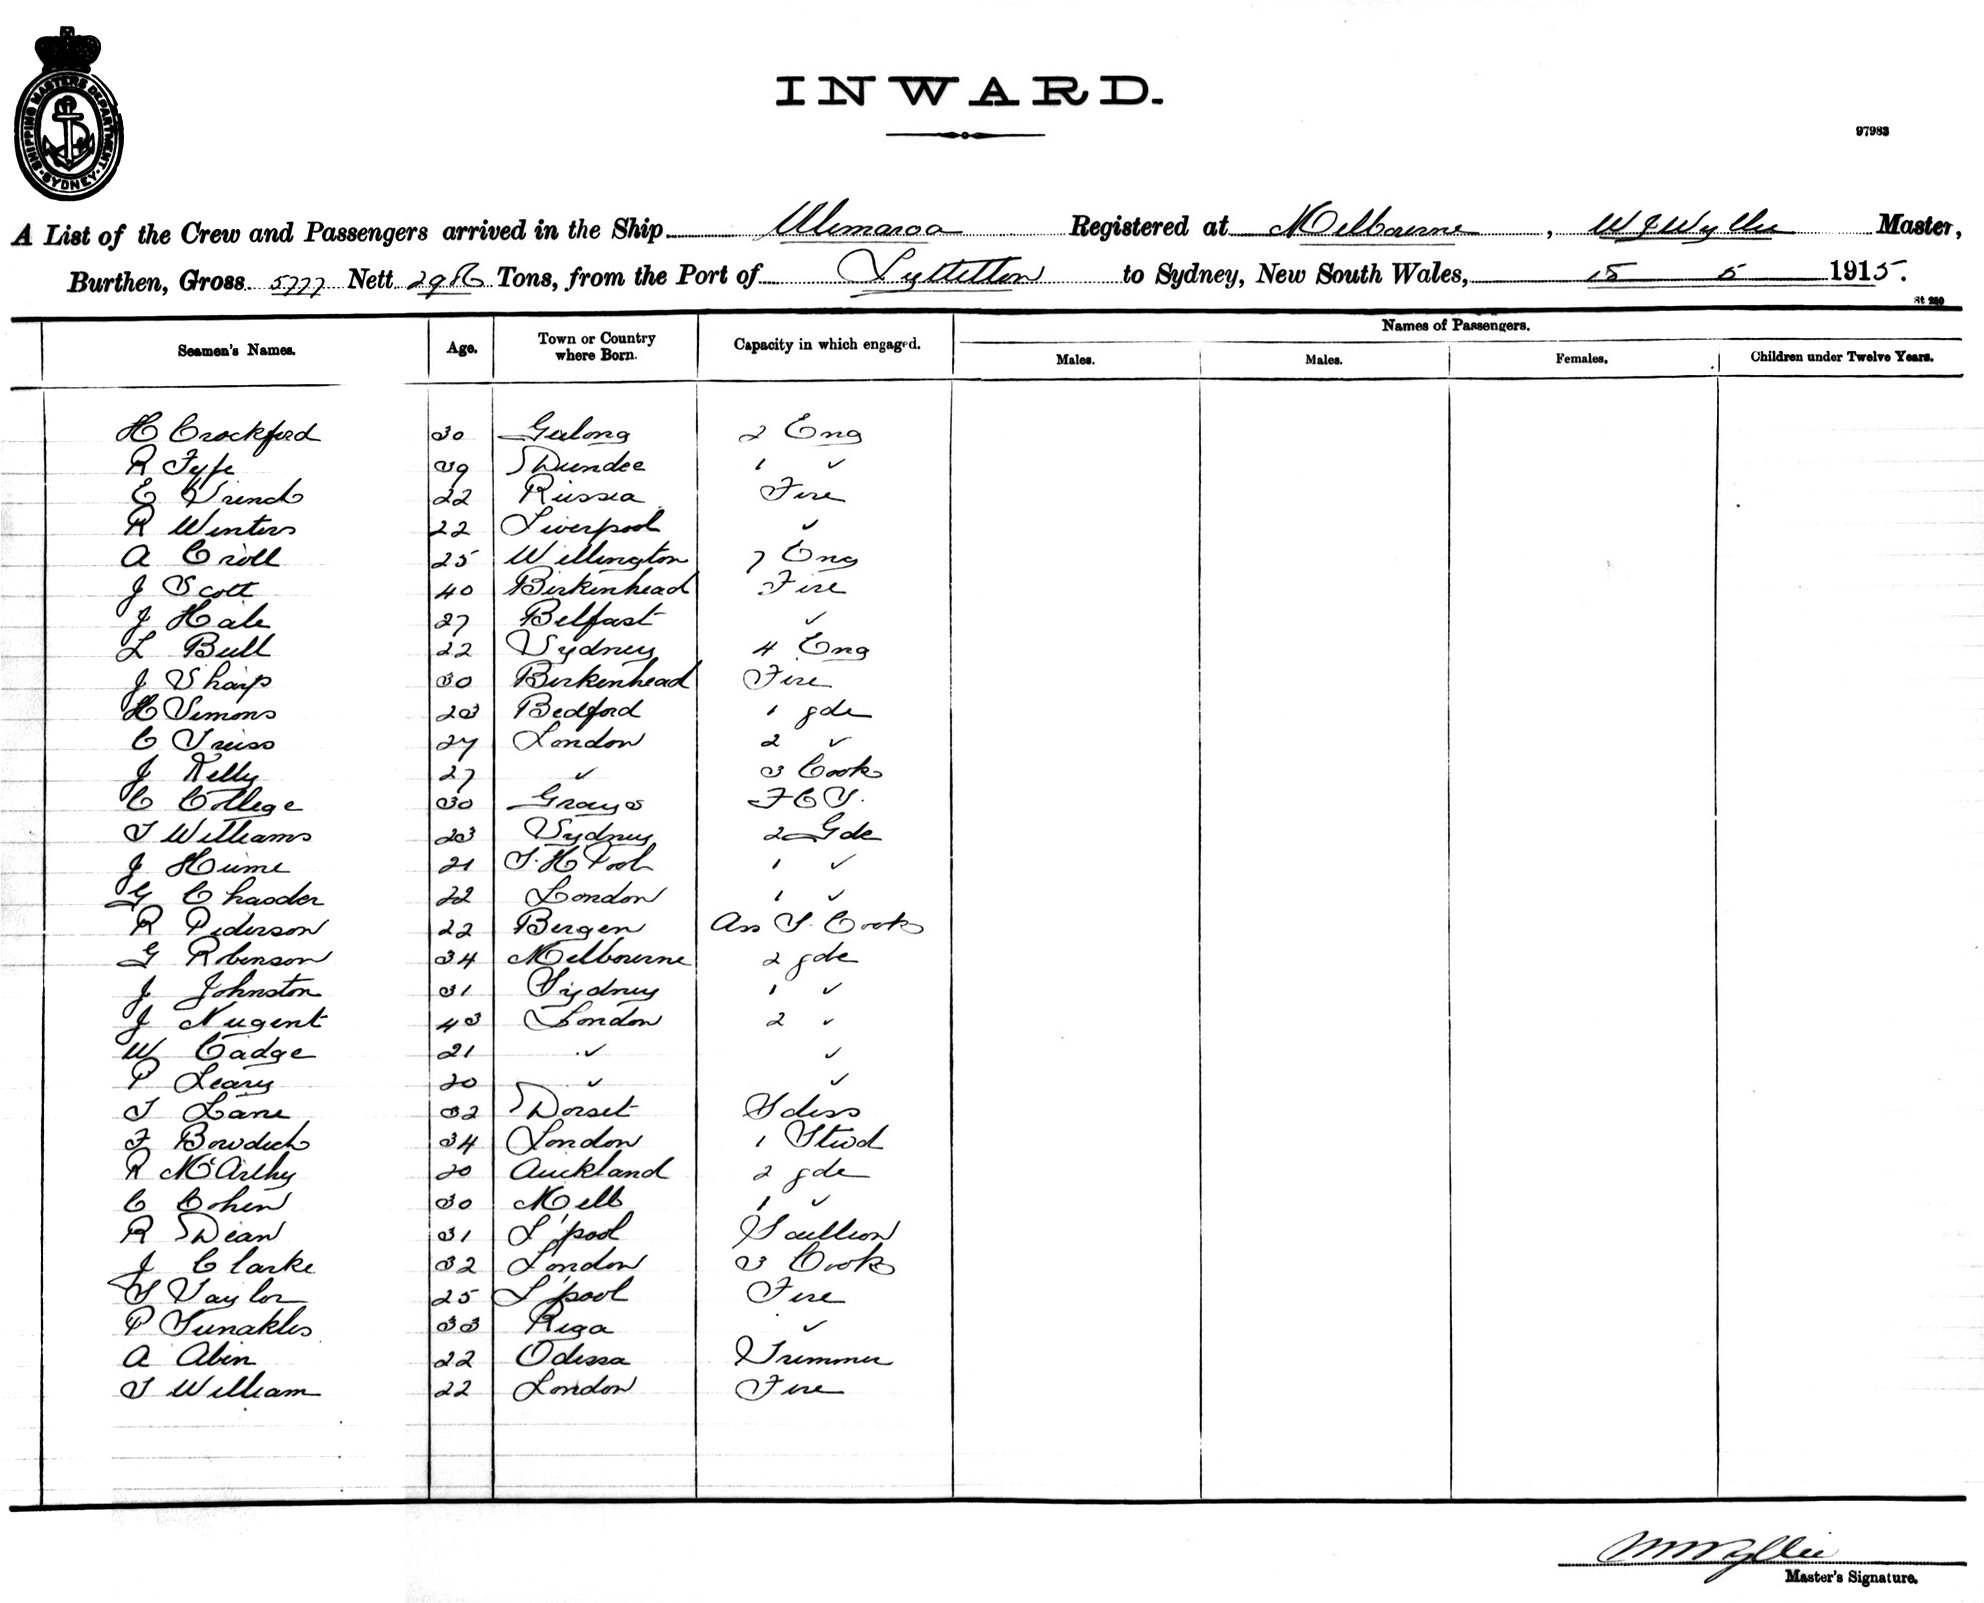 SHIPPING MASTERS DEPARTMENT
SYDNEY
INWARD.
97983
A List of the Crew and Passengers arrived in the Ship Ulimaroa Registered at Melbourne, W J Wyllie Master,
Burthen, Gross 5777 Nett Tons, from the Port of Lyttelton to Sydney, New South Wales, 15 5 1915.
St 250
Names of Passengers.
Seamen's Names. Age. Town or Country where Born. Capacity in which engaged. Males. Males. Females. Children under Twelve Years.
H Crockford 30 Geelong 2 Eng
R Fyfe 39 Dundee 1 ✓
E Trench 22 Russia Fire
R Winters 22 Liverpool ✓
A Croll 25 Wellington 7 Eng
J Scott 40 Birkenhead Fire
J Hale 27 Belfast ✓
L Bull 22 Sydney 4 Eng
J Sharp 30 Birkenhead Fire
H Simons 23 Bedford 1 gde
C Treiss 27 London 2 ✓
J Kelly 27 ✓ 3 Cook
C College 30 Grays F C S.
T Williams 23 Sydney 2 Gde
J Hume 21 1 ✓
G 22 London 1 ✓
R Pederson 22 Bergen Ass S. Cook
G Robinson 34 Melbourne 2 gde
J Johnston 31 Sydney 1 ✓
J Nugent 43 London 2 ✓
W Cadge 21 ✓ ✓
P Leary 20 ✓ ✓
T Lane 32 Dorset
F Bowditch 34 London 1 Stwd
R McArthy 20 Auckland 2 gde
C Cohen 30 Melb 1 ✓
R Dean 31 L'pool Scullion
J Clarke 32 London 3 Cook
S Taylor 25 L'pool Fire
P 33 Riga ✓
A Abin 22 Odessa Trimmer
T William 22 London Fire
W J Wyllie
Master's Signature.